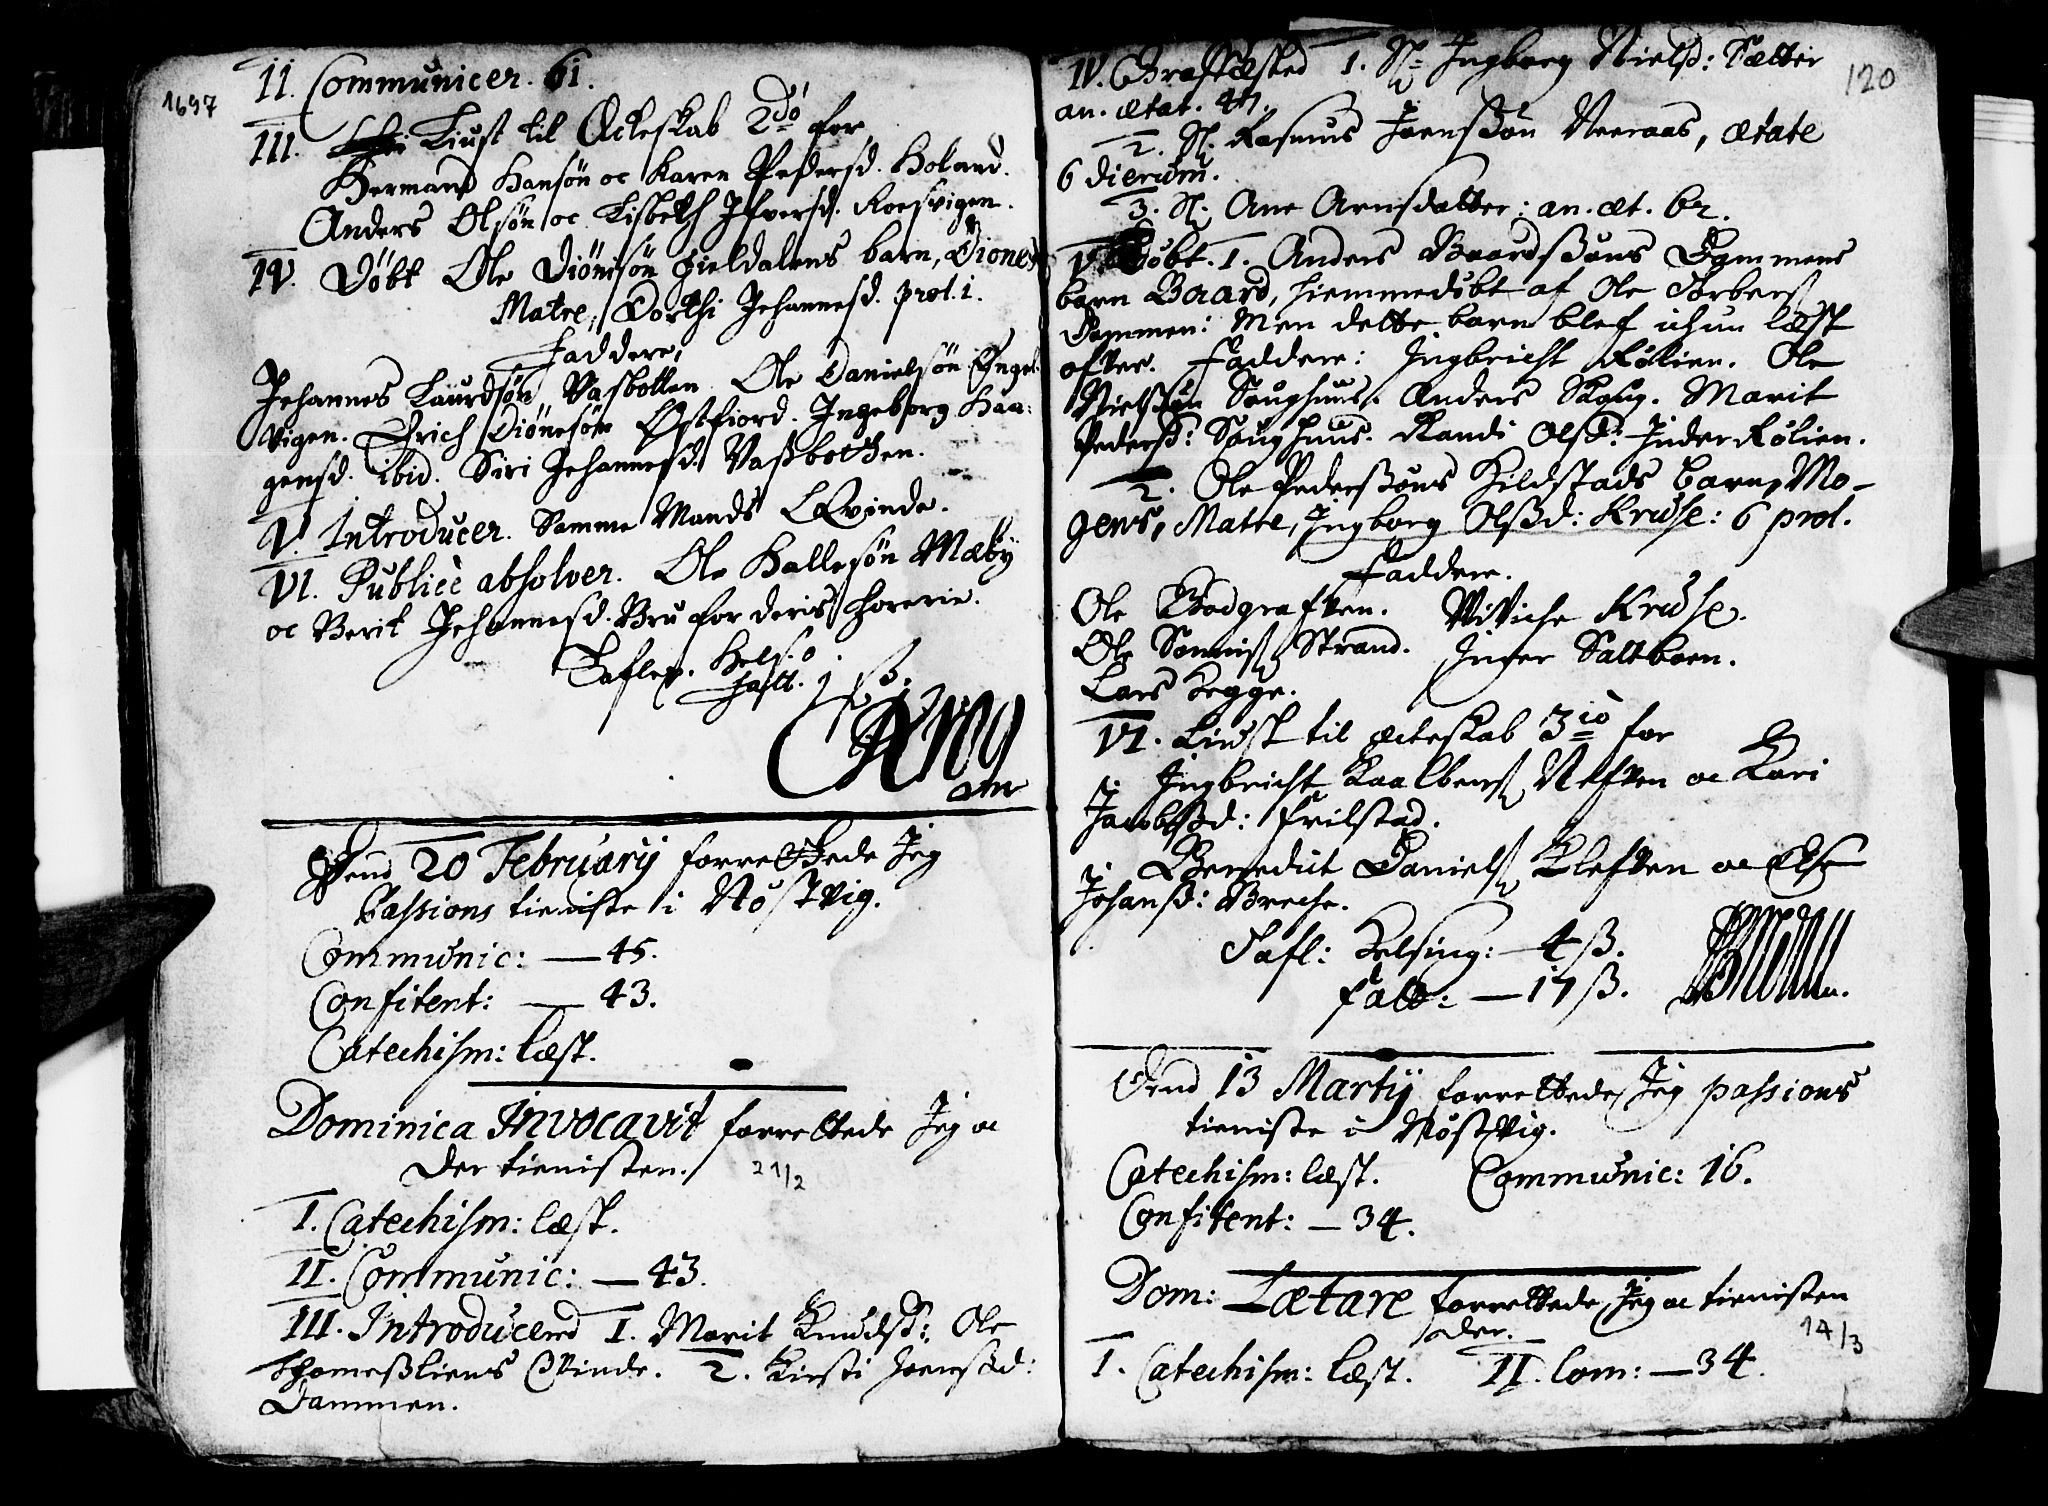 1697
II. Communicer. 61.
III. Liust til Ecteskab 2dò for
Herman Hansøn oc Karen Pedersd. Holand.
Anders Olsøn oc Lisbeth Ifversd. Roesvigen.
IV. Døbt Ole Diönisøn Fieldalens barn, Diones
Matre, Dorthi Johannesd. prol. 1.
Faddere,
Johannes Laurdsøn Vasbotten. Ole Danielsøn Engel-
vigen. Erich Diönesøn Østfiord. Ingeborg Haa-
gensd. ibid. Siri Johannesd. Vasbotten.
V. Introducer. Samme Mands Qvinde.
VI. Publicè absolver. Ole Hallesøn Mæby
oc Berit Johannesd. Bru for deris horerie.
Tafler. Hels. 0.
Fatt. 1 ß.
Dend 20 February forrettede Jeg
Passions tieniste i Nøstvig.
Communic: — 45.
Confitent: — 43.
Catechism: læst.
Dominica Invocavit forrettede Jeg oc
der tienisten. 21/2
I. Catechism: læst.
II. Communic: — 43.
III. Introducerd 1. Marit Knudsd: Ole
Thomesliens Qvinde. 2. Kirsti Joensd:
Dammen.
120
IV. Graffæsted 1. Sl: Ingborg Nielsd: Sætter
an. ætat. 47.
2. Sl. Rasmus Joensøn Neeraas, ætate
6 dierum.
3. Sl. Ane Arnsdatter: an. æt. 62.
V. Døbt. 1. Anders Baardsøns Dammens
barn Baard, hiemmedøbt af Ole Torbers
Dammen: Men dette barn blef ichun læst
ofver. Faddere: Ingbricht Følien. Ole
Nielsøn Soughuus. Anders Skoug. Marit
Pedersd: Soughuus. Randi Olsd: Inder Følien.
2. Ole Pedersøns Hildstads barn, Mo-
gens, Matre, Ingborg Olsd: Kruse: 6 prol.
Faddere.
Ole Bodgrafven. Viviche Kruse.
Ole Sonnis Strand. Inger Saltboen.
Lars Hegge.
VI. Liust til ecteskab 3iò for
1. Ingbricht Kaalbens Nefven oc Kari
Jacobsd: Frilstad.
1. Benedict Daniels Klefven oc Else
Johansd: Breche.
Tafl: Helsing: — 4 ß.
Fatt: — 17 ß.
Dend 13 Martij forrettede Jeg passions
tieniste i Nøstvig.
Catechism: læst. Communic: 16.
Confitent: — 34.
Dom: Lætare forrettede Jeg oc tienisten
der. 14/3
I. Catechism: læst. II. Com: — 34.